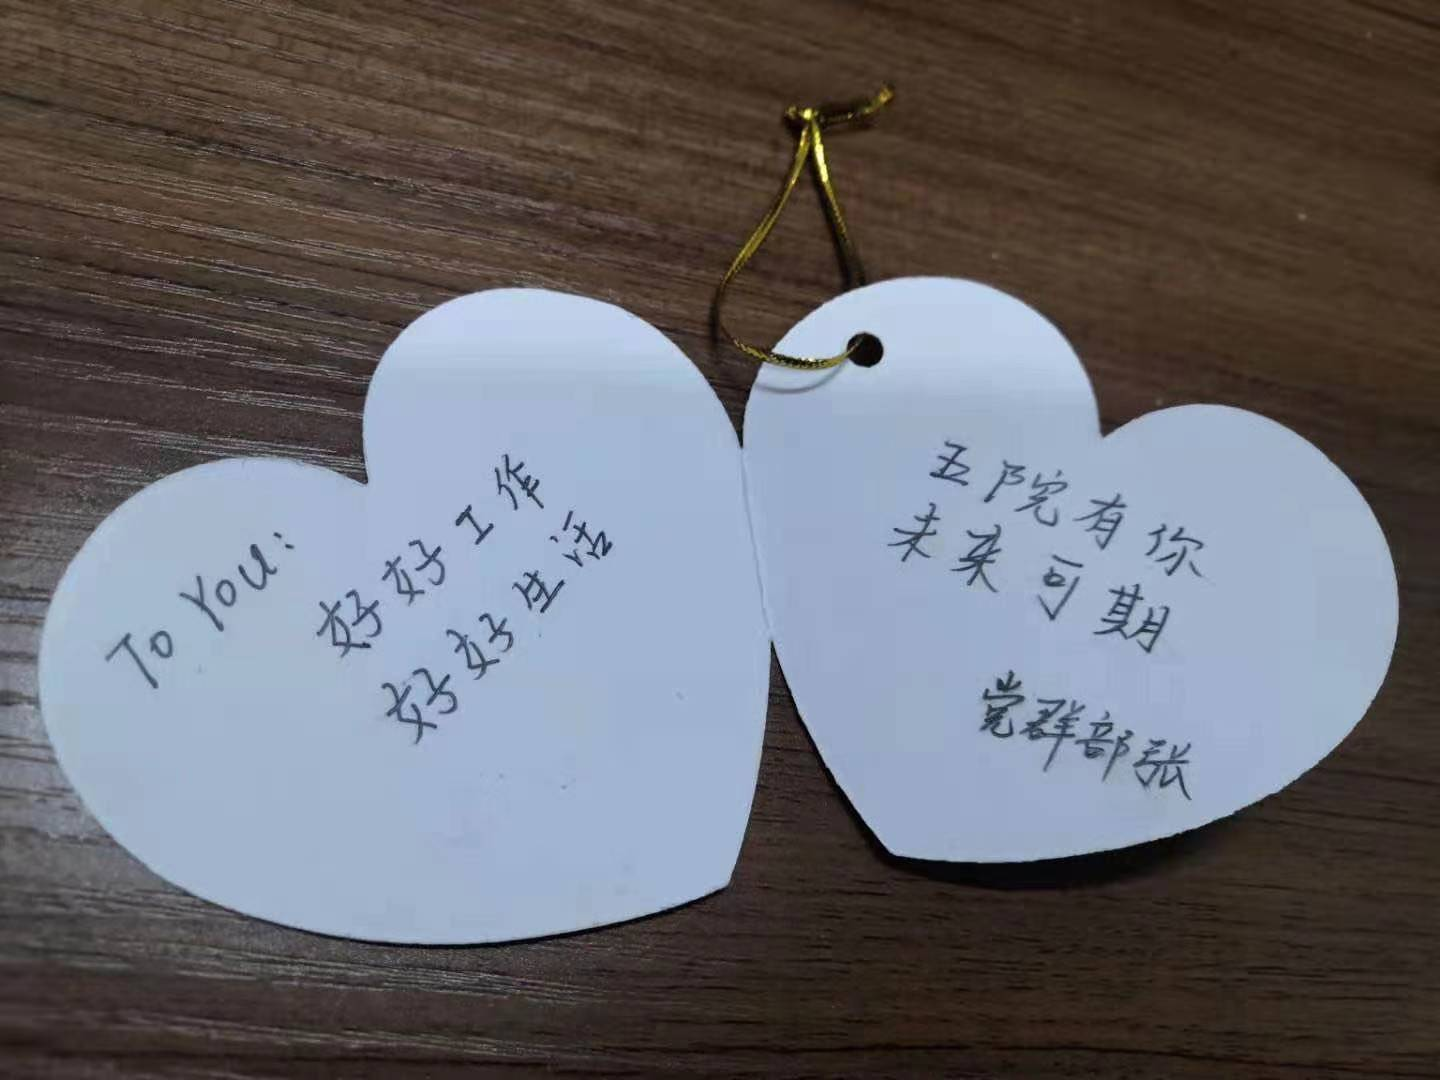 To You:
好好工作
好好生活
五院有你
未来可期
党群部张